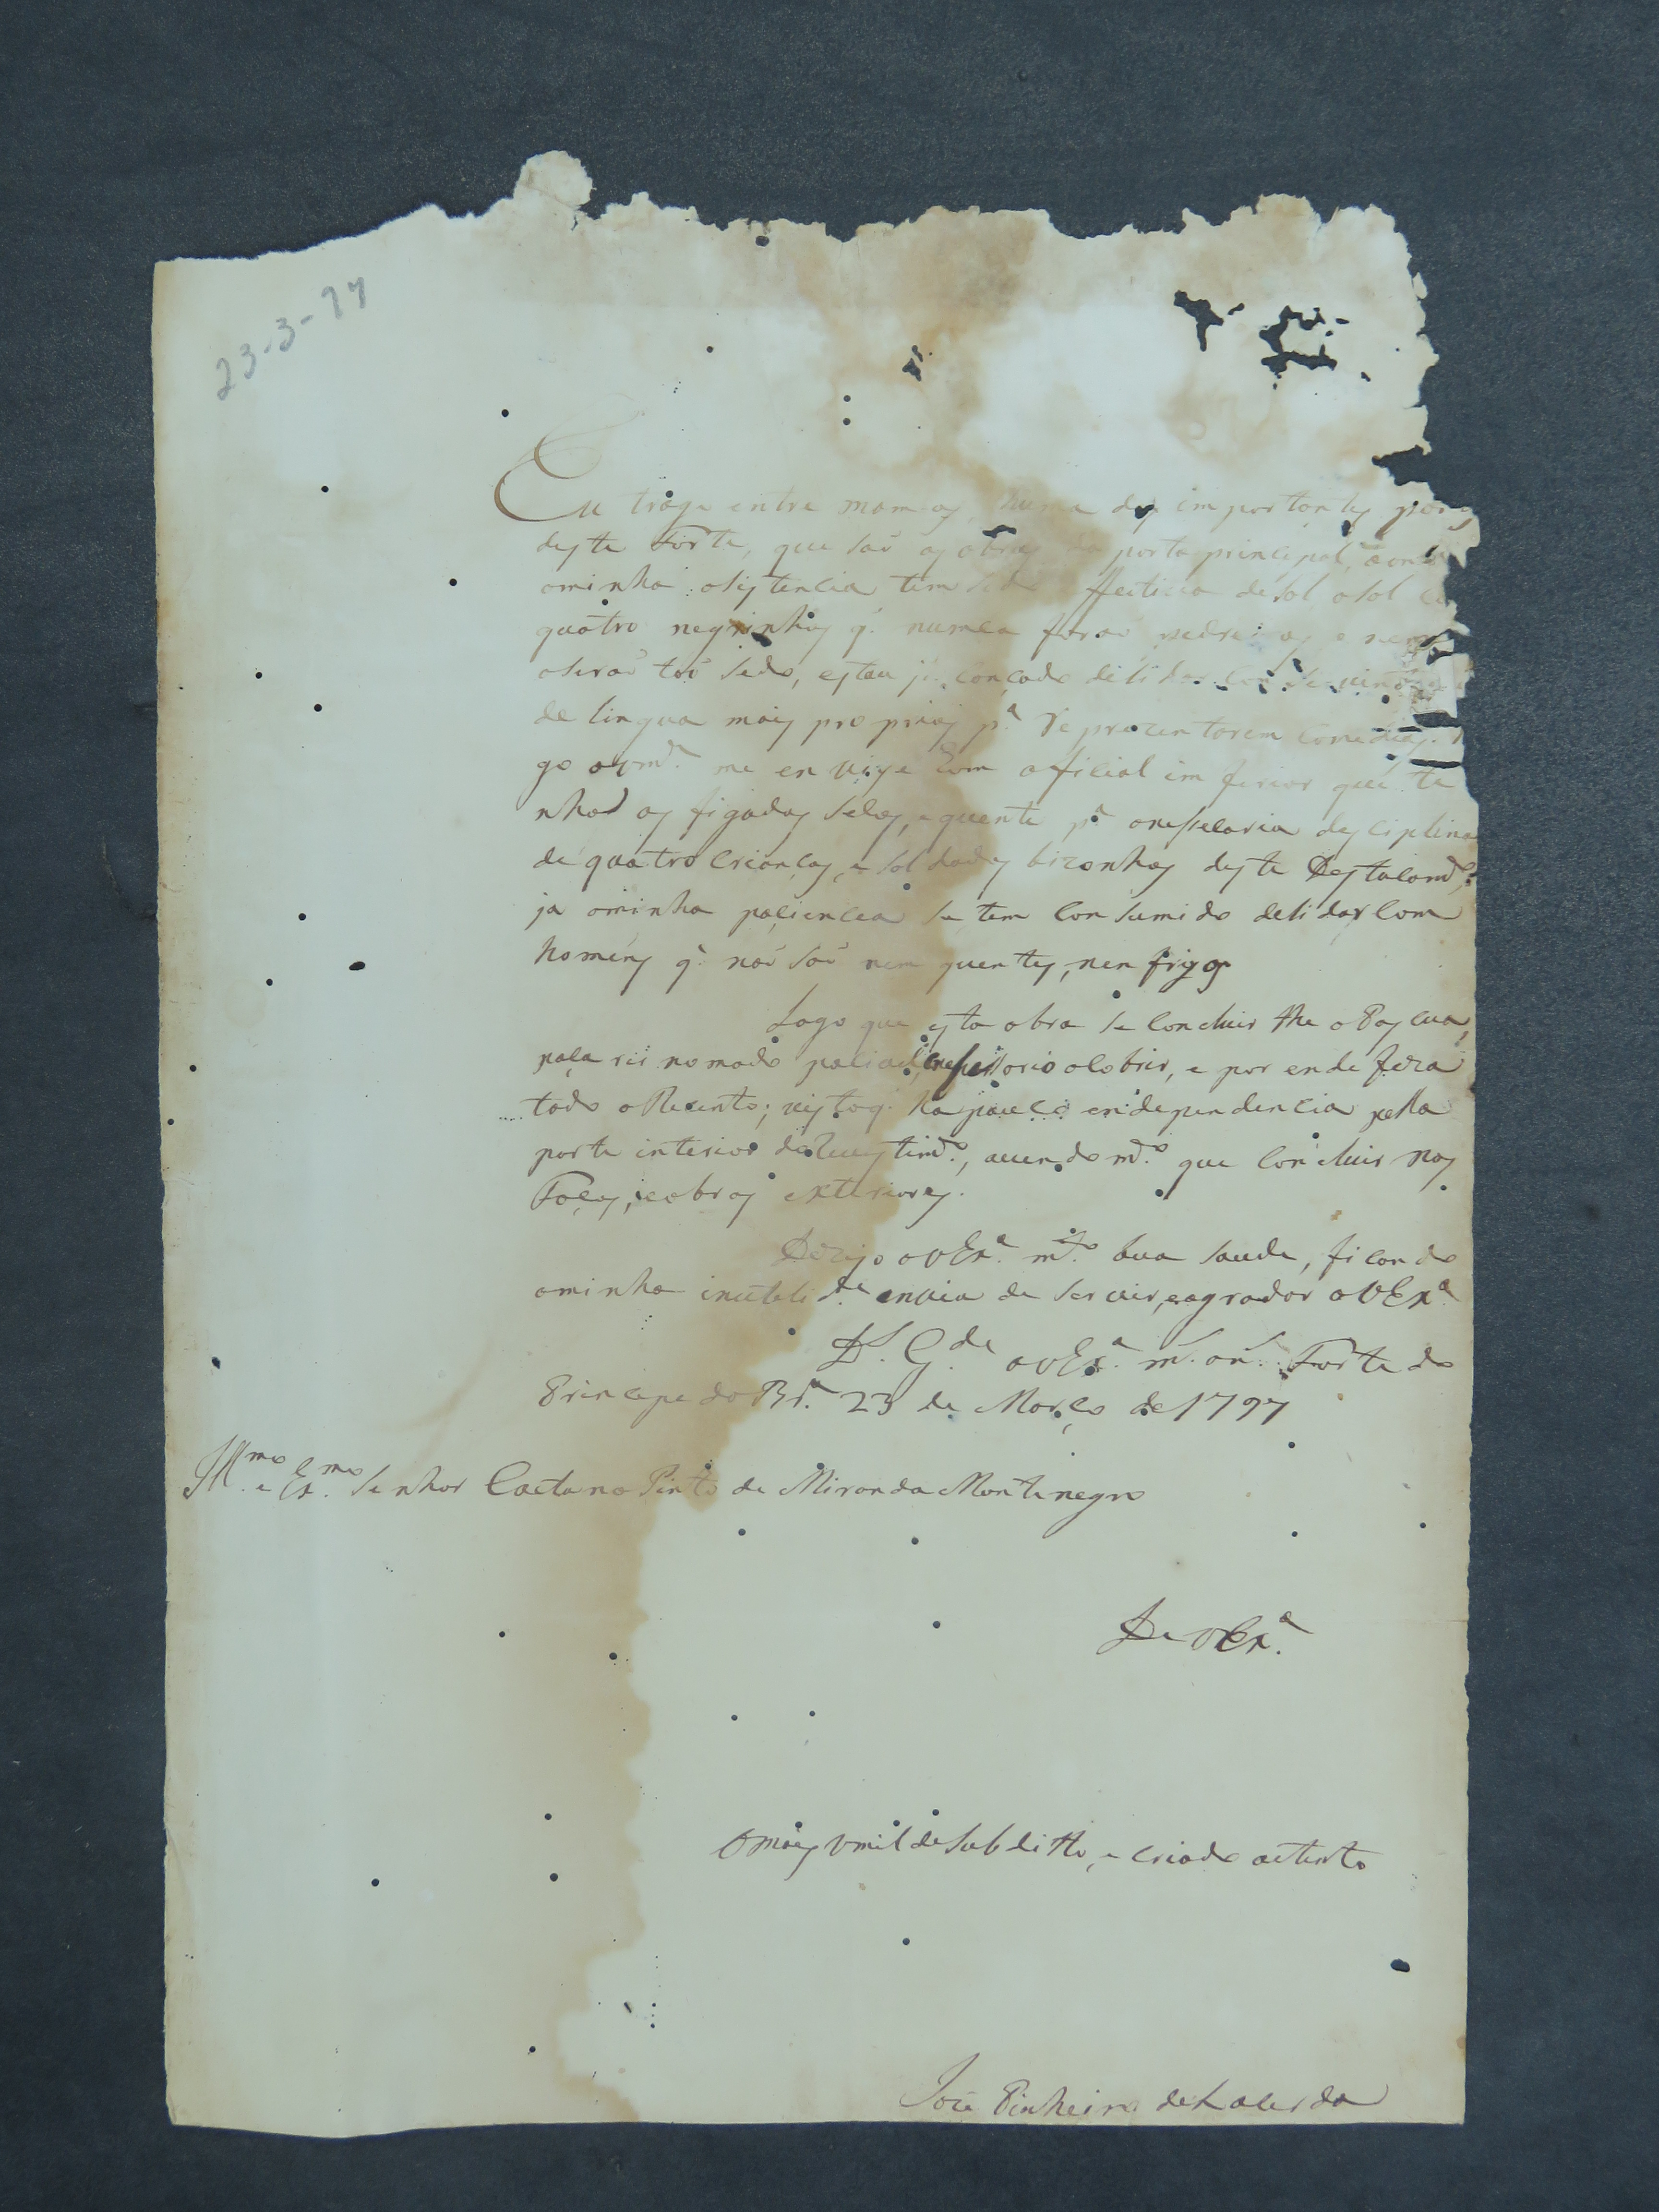 23-3-97
Eu trago entre mamos, huma das importantes
deste Forte, que saõ as obras da porta principal,
aminha asistencia tem sido effectiva desol asol
quatro negrinhos q. numca foraõ pedreiros e
aseraõ taõ sedo, estou ja cançado delidar com
de lingua mais proprias p.ª Reprezentarem comedias.
go avm.ᵉ me envige hum aficial imferior que te
nha os figados secos, e quente p.ª desciplina
de quatro crianças, e soldados bizonhos deste Destacam.ᵗᵒ,
ja aminha paciencia se tem consumido delidar com
homens q. naõ saõ nem quentes, nem frigos
Logo que esta obra se concluir the a Pascua,
paça rei no mado aCobrir, e por ende feza
todo oRecento; visto q. ha pouca endependencia pella
parte interior do Revestim.ᵗᵒ, avendo m.ᵗᵒ que concluir nos
Foços, eobras exteriores.
Dezejo aVEx.ª m.ᵗᵃ bua saude, ficando
aminha inutelid.ᵉ envia de servir, eagradar aVEx.ª
D.ˢ G.ᵈᵉ aVEx.ª m.ˢ an.ˢ Forte do
Principe daBr.ª 23 de Março de 1797
Ill.ᵐᵒ e Ex.ᵐᵒ Senhor Caetano Pinto de Miranda Montenegro
De VEx.ª
Omais Umilde Subditto, e criado attento
Joze Pinheiro deLacerda